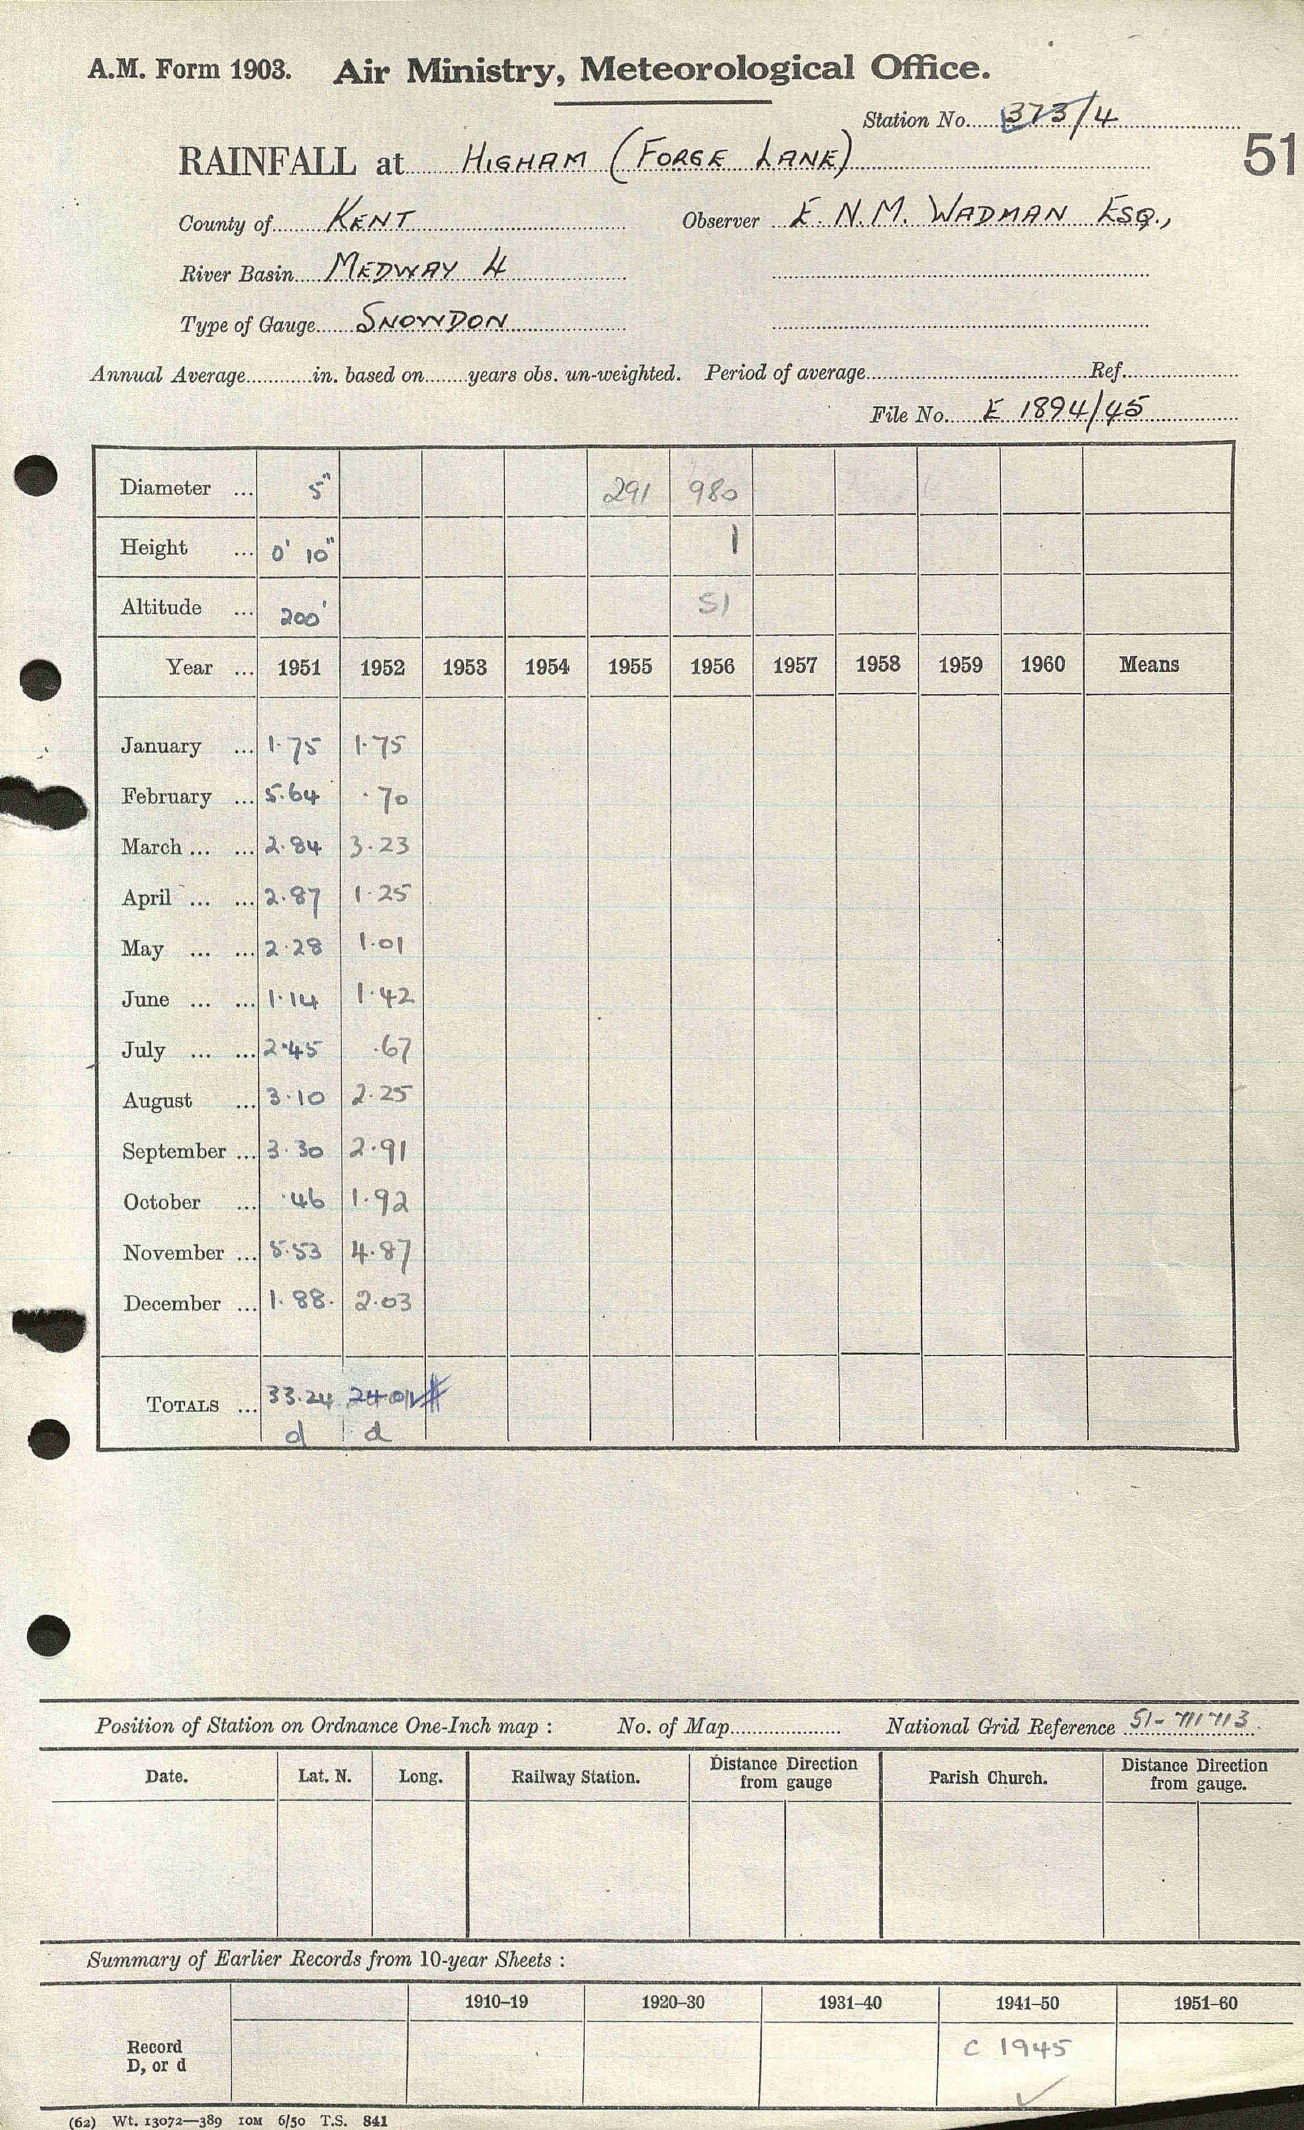 A.M. Form 1903. Air Ministry, Meteorological Office.
Station No. 373/4
51
RAINFALL at HIGHAM (FORGE LANE)
County of KENT Observer E. N. M. WADMAN ESQ.,
River Basin MEDWAY 4
Type of Gauge SNOWDON
Annual Average in. based on years obs. un-weighted. Period of average Ref.
File No. E 1894/45
Diameter ... 5" 291 980
Height ... 0' 10" 1
Altitude ... 200' 51
Year ... 1951 1952 1953 1954 1955 1956 1957 1958 1959 1960 Means
January ... 1.75 1.75
February ... 5.64 .70
March ... ... 2.84 3.23
April ... ... 2.87 1.25
May ... ... 2.28 1.01
June ... ... 1.14 1.42
July ... ... 2.45 .67
August ... 3.10 2.25
September ... 3.30 2.91
October ... .46 1.92
November ... 5.53 4.87
December ... 1.88. 2.03
TOTALS ... 33.24 24.01
d d
Position of Station on Ordnance One-Inch map : No. of Map National Grid Reference 51-711713
Date. Lat. N. Long. Railway Station. Distance Direction from gauge Parish Church. Distance Direction from gauge.
Summary of Earlier Records from 10-year Sheets :
1910–19 1920–30 1931–40 1941–50 1951–60
Record
D, or d
C 1945
(62) Wt. 13072—389 10M 6/50 T.S. 841